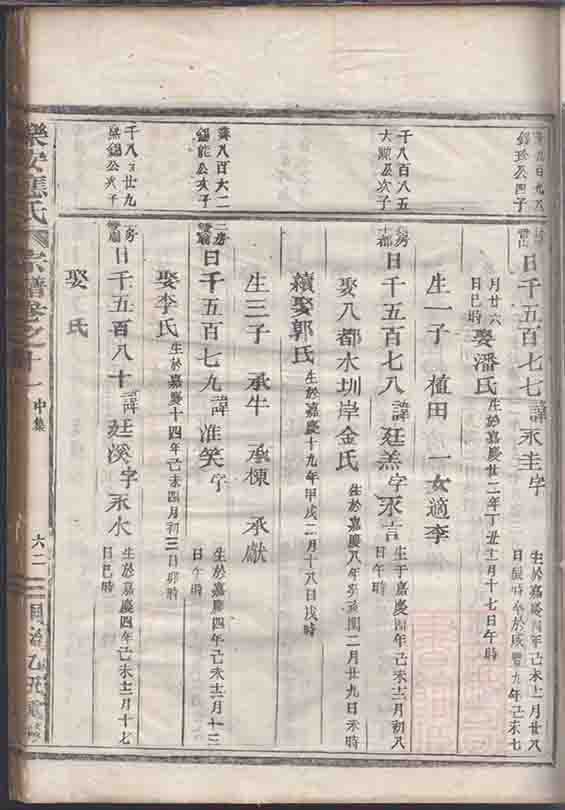 日千五百七七 諱永圭字 生於嘉慶四年己未十二月廿八
日 時卒於咸豐九年己未七
月廿六
日巳時 娶潘氏 生於嘉慶廿二年丁丑十二月十七日午時
生一子 植田 一女適李
千八百八五
大 公次子
日千五百七八 諱廷羔字永言 生于嘉慶四年己未十二月初八
日午時
娶八都水圳岸金氏 生於嘉慶八年癸亥閏二月廿九日未時
續娶郭氏 生於嘉慶十九年甲戌二月十八日戌時
生三子 承牛 承棟 承獻
八百六二
錫能公次子
日千五百七九 諱淮笑字 生於嘉慶四年己未十二月十三
日午時
娶李氏 生於嘉慶十四年己未四月初三日卯時
千八 廿九
錫公次子
日千五百八十 諱廷溪字永水 生於嘉慶四年己未十二月十七
日巳時
娶 氏
樂安 氏 宗譜卷之十一 中集 六二 同治乙丑重修